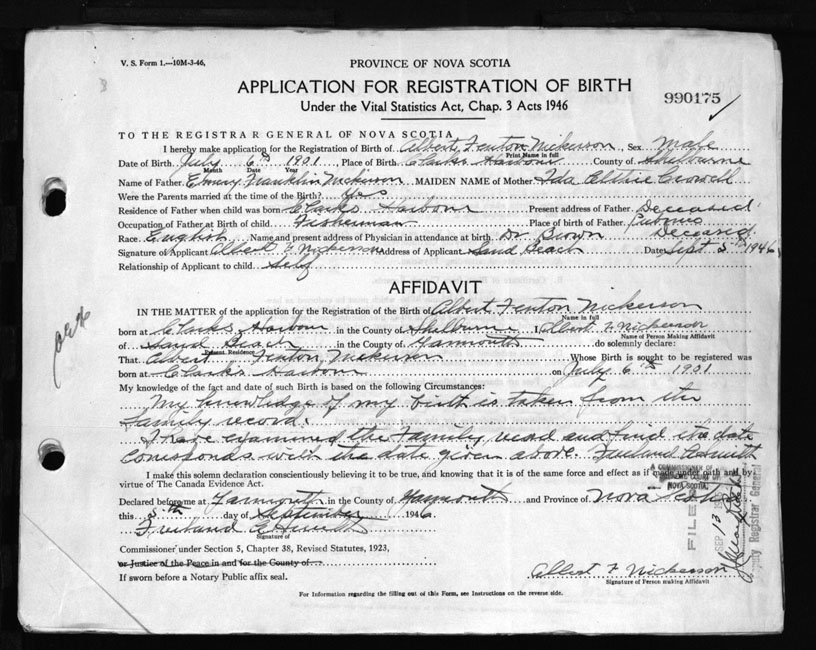 V. S. Form 1.—10M-3-46,
PROVINCE OF NOVA SCOTIA
APPLICATION FOR REGISTRATION OF BIRTH
Under the Vital Statistics Act, Chap. 3 Acts 1946
990175
TO THE REGISTRAR GENERAL OF NOVA SCOTIA
I hereby make application for the Registration of Birth of Albert Fenton Nickerson, Sex Male
Print Name in full
Date of Birth July 6th 1901 Place of Birth Clarks Harbour County of Shelburne
Month Date Year
Name of Father Franklin Nickerson MAIDEN NAME of Mother Ida Crowell
Were the Parents married at the time of the Birth? Yes
Residence of Father when child was born Clarks Harbour Present address of Father Deceased
Occupation of Father at Birth of Child Fisherman Place of birth of Father
Race English Name and present address of Physician in attendance at birth Dr Brown Deceased
Signature of Applicant Albert F Nickerson Address of Applicant Sand Beach Date Sept 5th 1946
Relationship of Applicant to child Self
AFFIDAVIT
IN THE MATTER of the application for the Registration of the Birth of Albert Fenton Nickerson
Name in full
born at Clarks Harbour in the County of Shelburne I Albert F Nickerson
Name of Person Making Affidavit
of Sand Beach in the County of Yarmouth do solemnly declare:
Present Residence
That Albert Fenton Nickerson Whose Birth is sought to be registered was
born at Clarks Harbour on July 6th 1901
My knowledge of the fact and date of such Birth is based on the following Circumstances:
My knowledge of my birth is taken from the
family record.
I have examined the Family record and find the date
corresponds with the date given above.
I make this solemn declaration conscientiously believing it to be true, and knowing that it is of the same force and effect as if made under oath and by
virtue of The Canada Evidence Act.
A COMMISSIONER OF
SUPREME COURT OF
NOVA SCOTIA
Declared before me at Yarmouth in the County of Yarmouth and Province of Nova Scotia
this 5th day of September 1946
Signature of
Commissioner under Section 3, Chapter 38, Revised Statutes, 1923,
or Justice of the Peace in and for the County of
If sworn before a Notary Public affix seal.
Albert F Nickerson
Signature of Person making Affidavit
For Information regarding the filling out of this Form, see Instructions on the reverse side.
FILED
SEP 13
Deputy Registrar General